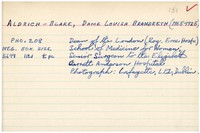 ALDRICH-BLAKE, DAME LOUISA BRANDRETH (1865-1925)
PHO: 208
Dean of the London (Roy. Free Hosp)
School of Medicine for Women,
Senior Surgeon to the Elizabeth
Garrett Anderson Hospital
Photograph: Lafayette, Ltd, Dublin.